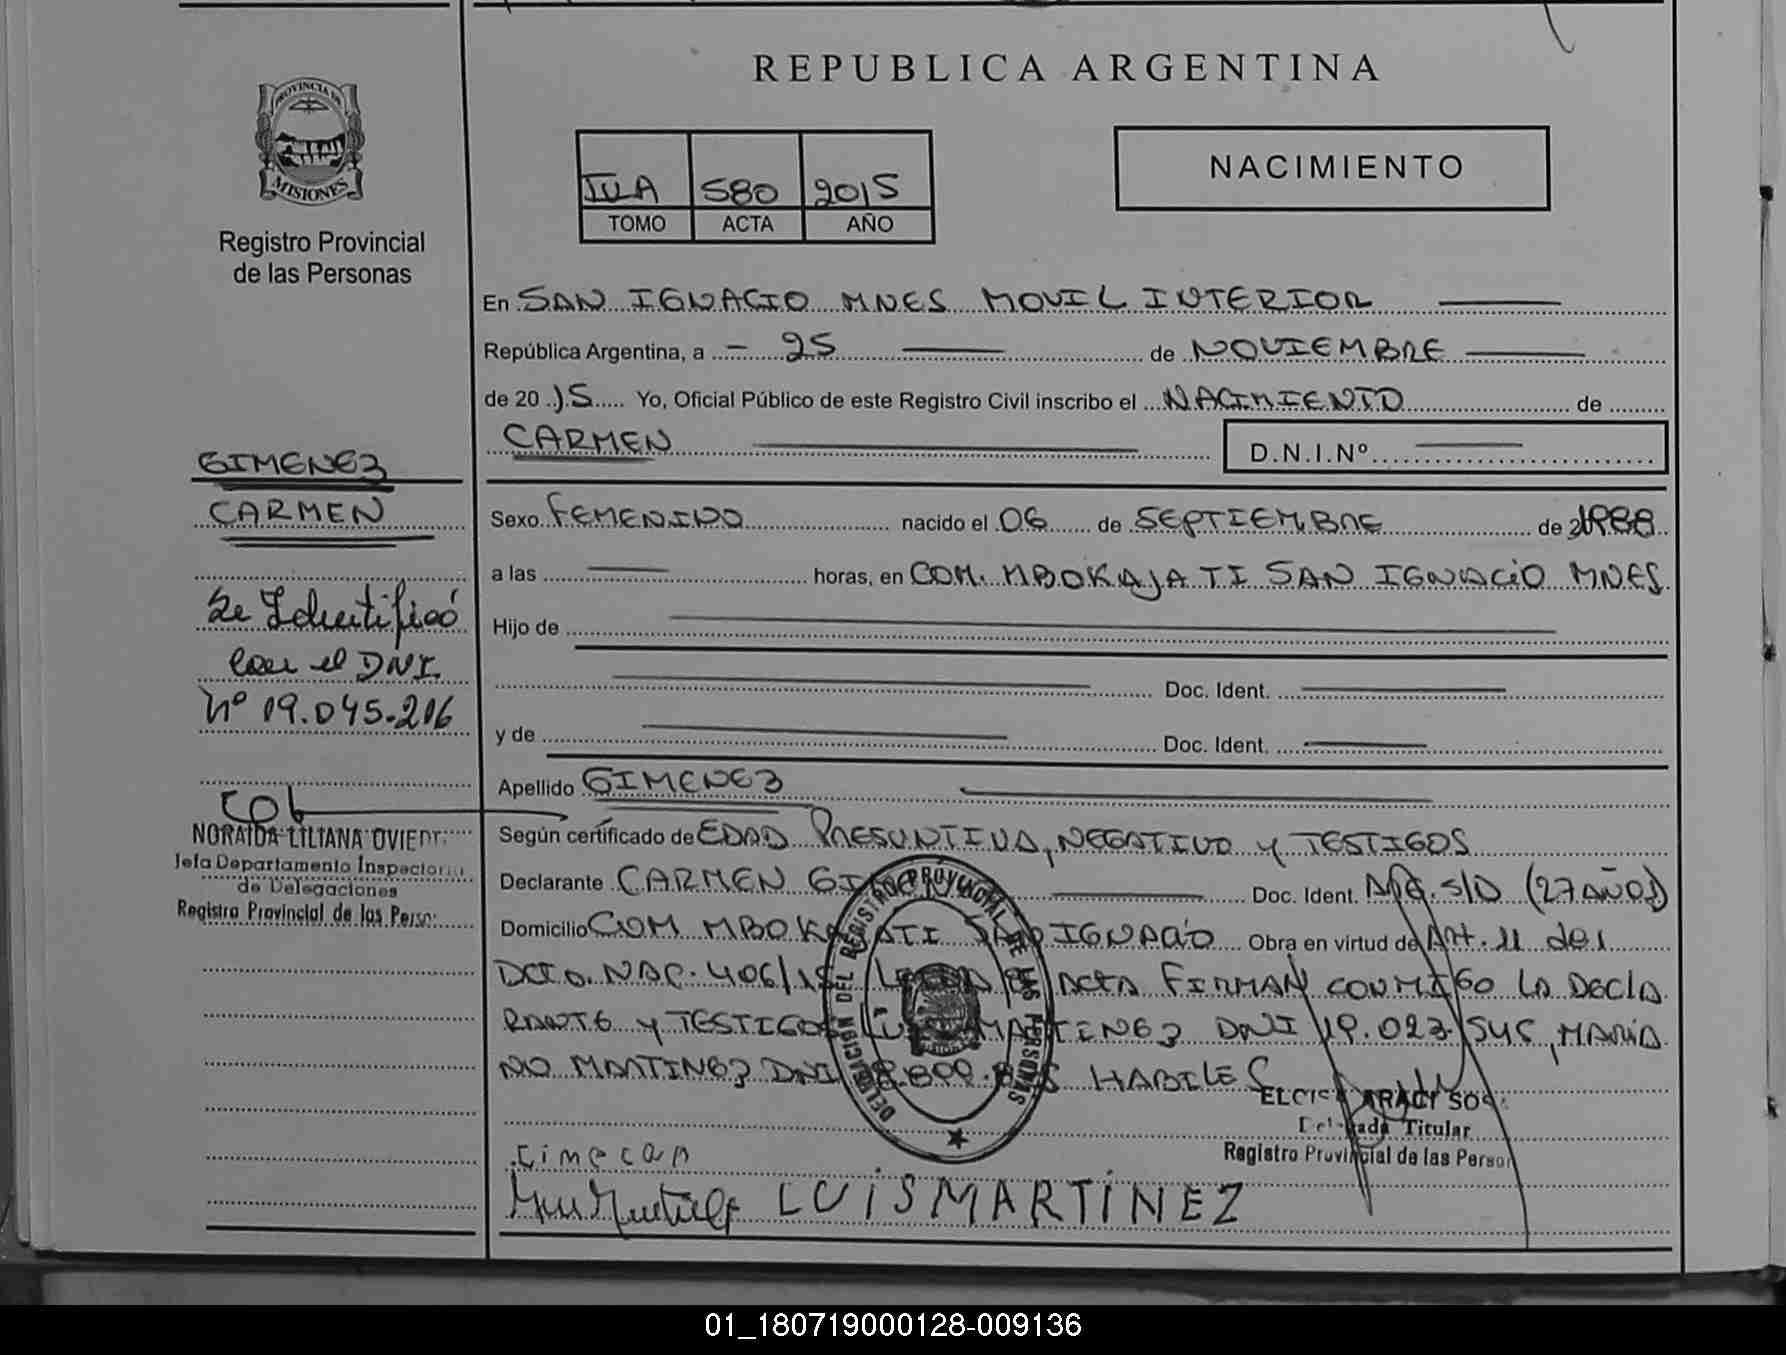 REPUBLICA ARGENTINA
PROVINCIA DE
MISIONES
Registro Provincial
de las Personas
580 2015
TOMO ACTA AÑO
NACIMIENTO
En SAN IGNACIO MNES MOVIL INTERIOR
República Argentina, a 25 de NOVIEMBRE
de 20 15 Yo, Oficial Público de este Registro Civil inscribo el NACIMIENTO de
CARMEN
D.N.I.Nº
GIMENEZ
CARMEN
Se Identificó
con el DNI
Nº 19.045.216
NORAIDA LILIANA OVIED
Jefa Departamento Inspectoria
de Delegaciones
Registro Provincial de las Perso
Sexo FEMENINO nacido el 06 de SEPTIEMBRE de 1988
a las horas, en COM. MBOKAJATI SAN IGNACIO MNES
Hijo de
Doc. Ident.
y de Doc. Ident.
Apellido GIMENEZ
Según certificado de EDAD PRESUNTIVA, NEGATIVO y TESTIGOS
Declarante CARMEN Doc. Ident. S/D (27 AÑOS)
Domicilio COM MBOKAJATI SAN IGNACIO Obra en virtud de Art. 11 del
DCTO. NAC. 406/15 ACTA FIRMAN CONMIGO LA DECLA
RANTE y TESTIGOS LUIS MARTINEZ DNI 19.023.545, MARIA
NO MARTINEZ DNI HABILES
DELEGACION DEL REGISTRO PROVINCIAL DE LAS PERSONAS
Delegada Titular
Registro Provincial de las Person
LUIS MARTÍNEZ
01_180719000128-009136